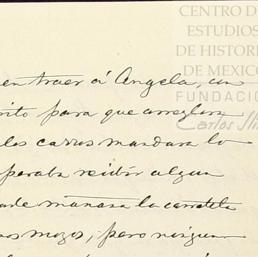 CENTRO D
ESTUDIOS
DE HISTORI
DE MEXICO
FUNDACIO
Carlos Sli
en traer á Angela, un
rito para que arreglara
los carros mandara lo
peraba recibir algun
de manana la carretela
nos mozos, pero ningun